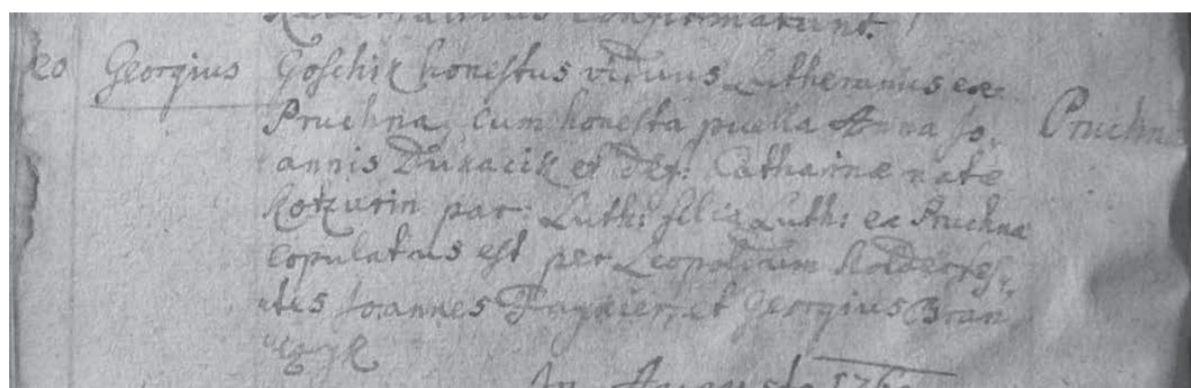 confirmarunt.
20 Georgius Goschik honestus viduus Lutheranus ex
Pruchna, cum honesta puella Anna Jo, Pruchna
annis Dukacik et def: Catharinae nate
Kotzurin par: Luth: filia Luth: ex Pruchna
copulatus est per Leopoldum
tes Joannes et Georgius Bran
In Augusto